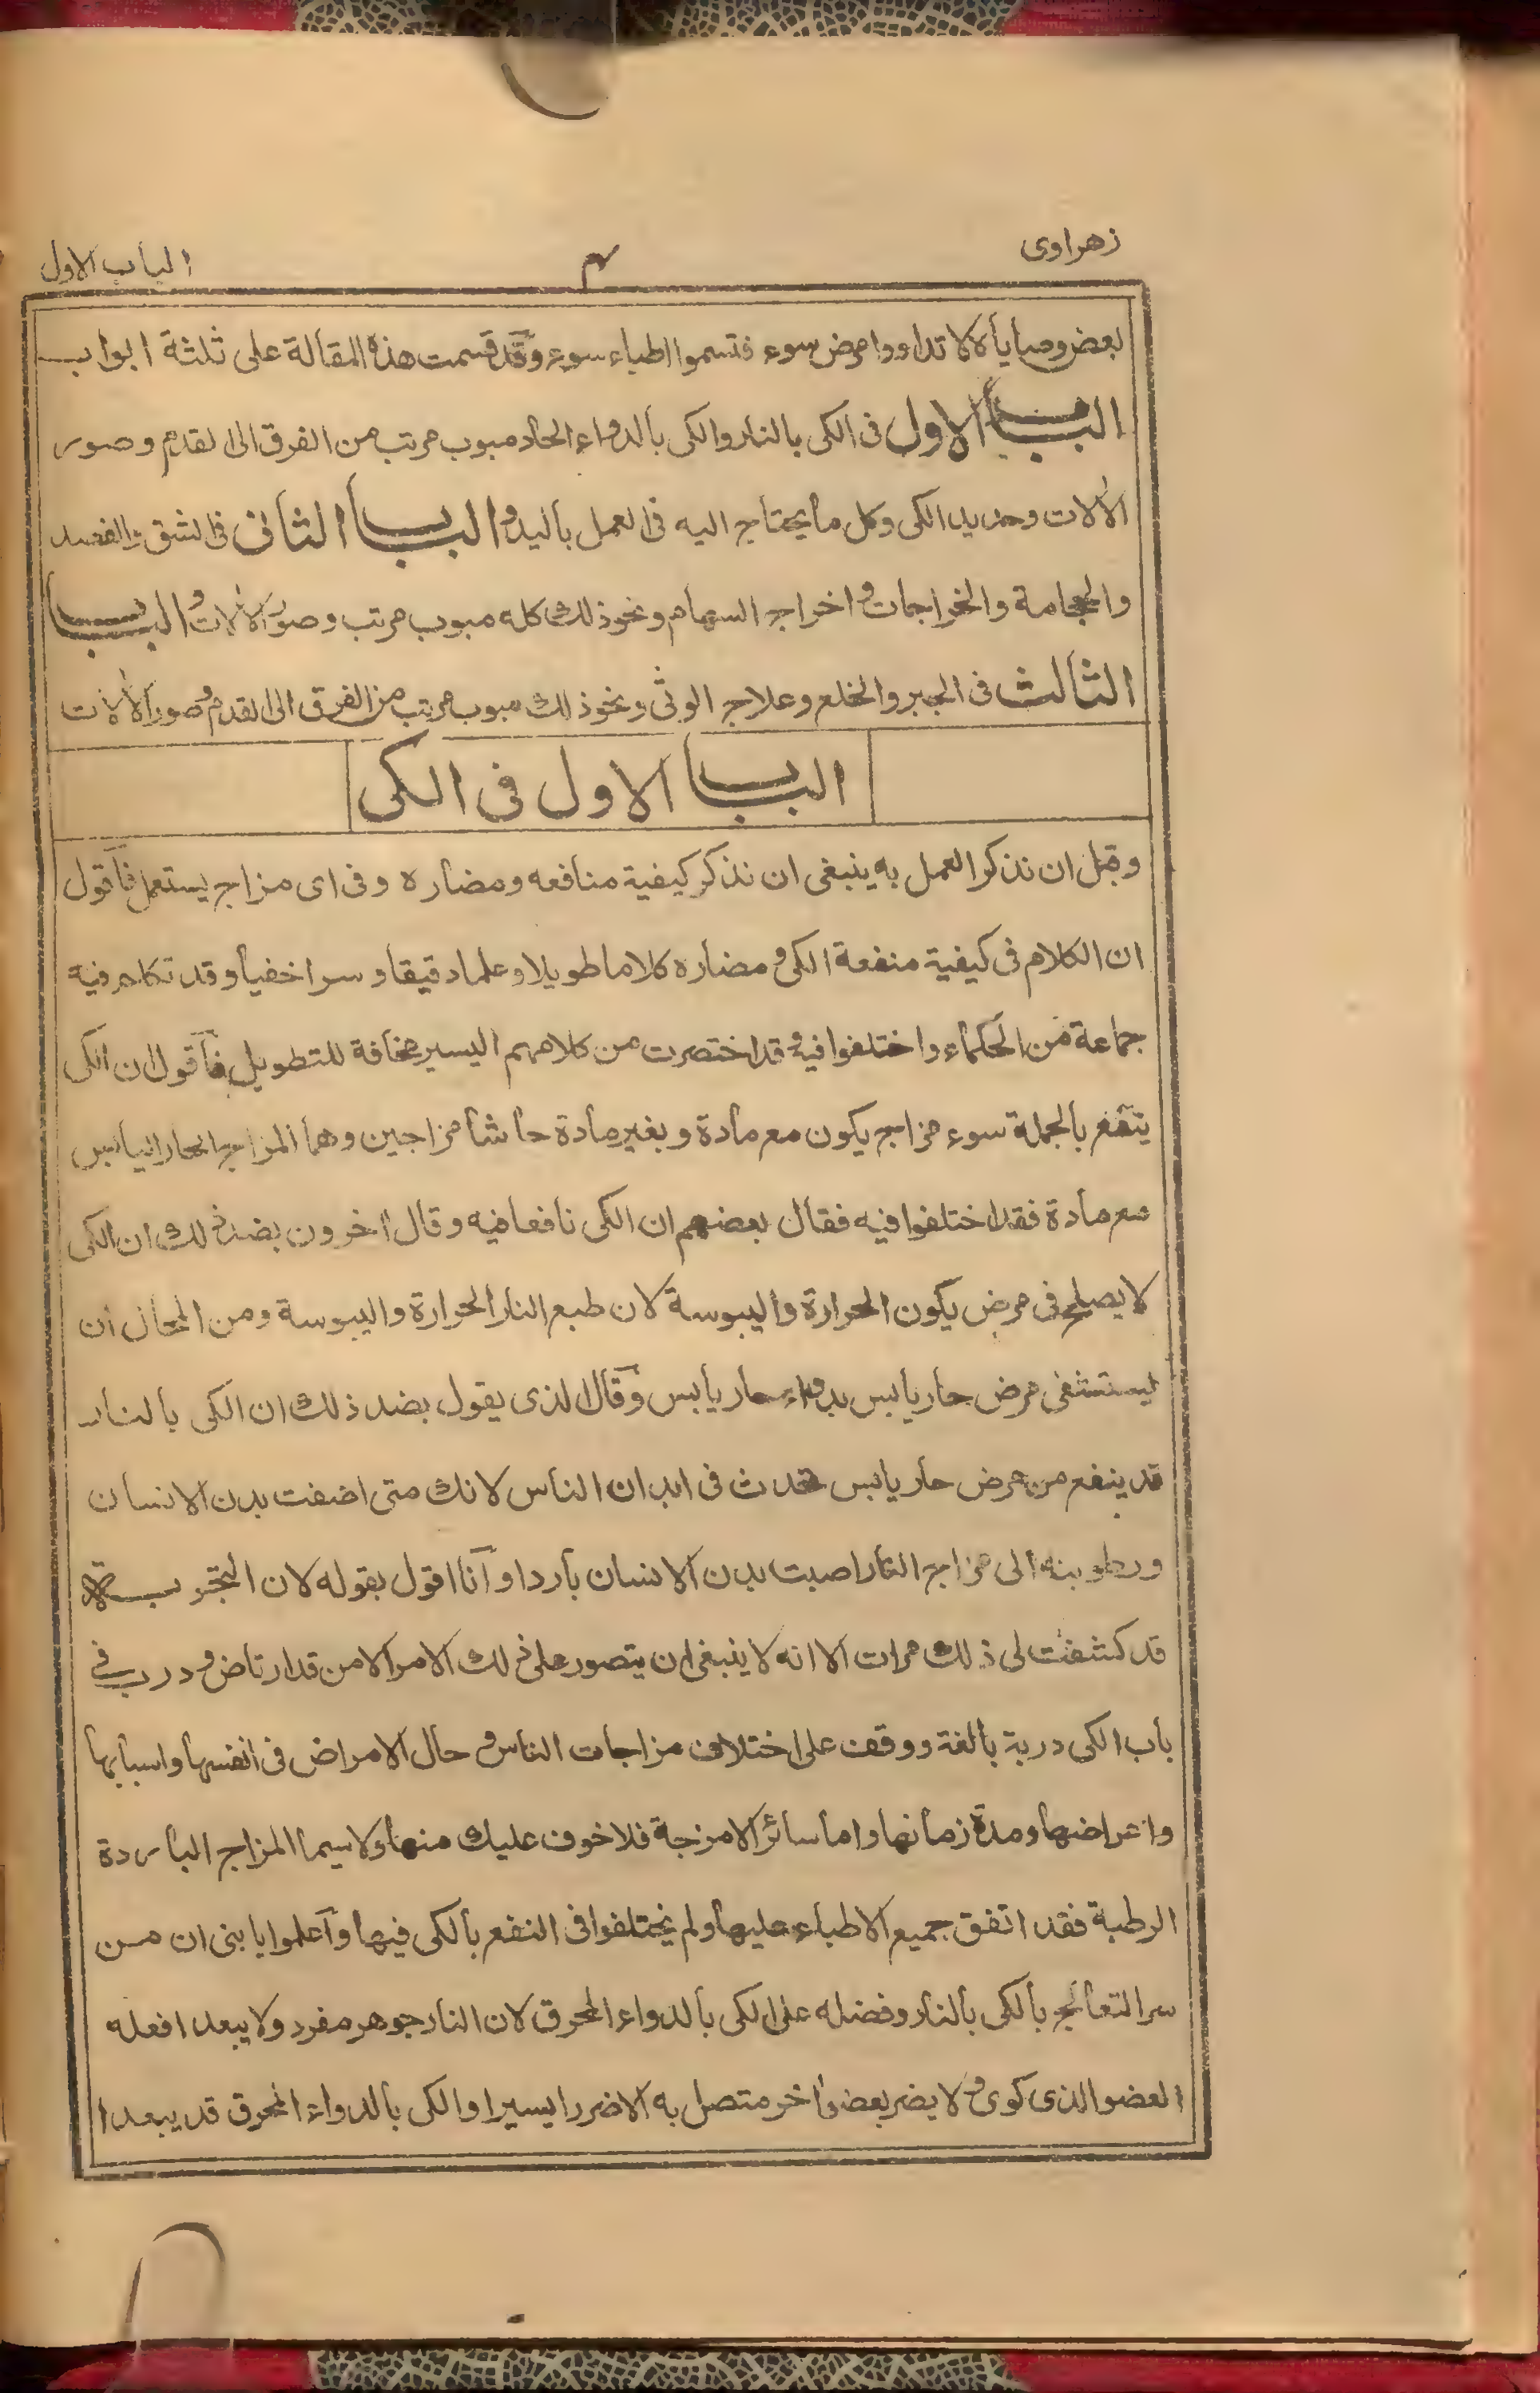 زهراوی ۴ الباب الاول
بعض وصایاه لا تداووا مرض سوء فتسموا اطباء سوء وقد قسمت هذه المقالة علی ثلثة ابواب
الباب الاول فی الکی بالنار والکی بالدواء الحاد مبوب مرتب من الفرق الی القدم وصور
الآلات وحدید الکی وکل ما یحتاج الیه فی العمل بالید والباب الثانی فی الشق والفصد
والحجامة والخراجات واخراج السهام ونحو ذلك کله مبوب مرتب وصور الآلات والباب
الثالث فی الجبر والخلع وعلاج الوثی ونحو ذلك مبوب مرتب من الفرق الی القدم وصور الآلات
الباب الاول فی الکی
وقبل ان نذکر العمل به ینبغی ان نذکر کیفیة منافعه ومضاره وفی ای مزاج یستعمل فاقول
ان الکلام فی کیفیة منفعة الکی ومضاره کلاما طویلا وعلما دقیقا وسرا خفیا وقد تکلم فیه
جماعة من الحکماء واختلفوا فیه وقد اختصرت من کلامهم الیسیر مخافة للتطویل فاقول ان الکی
ینفع بالجملة سوء مزاج یکون مع مادة وبغیر مادة حاشا مزاجین وهما المزاج الحار الیابس
مع مادة فقد اختلفوا فیه فقال بعضهم ان الکی نافعا فیه وقال اخرون بضد ذلك ان الکی
لا یصلح فی مرض یکون الحرارة والیبوسة لان طبع النار الحرارة والیبوسة ومن المحال ان
یستشفی مرض حار یابس بدواء حار یابس وقال الذی یقول بضد ذلك ان الکی بالنار
قد ینفع من مرض حار یابس تحدث فی ابدان الناس لانك متی اضفت بدن الانسان
ورطوبته الی مزاج النار اصبت بدن الانسان باردا وانا اقول بقوله لان التجربة
قد کشفت لی ذلك مرات الا انه لا ینبغی ان یتصور علی ذلك الامر الا من قد ارتاض ودرب فی
باب الکی دربة بالغة ووقف علی اختلاف مزاجات الناس وحال الامراض فی انفسها واسبابها
واعراضها ومدة زمانها واما سائر الامزجة فلا خوف علیك منها ولا سیما المزاج الباردة
الرطبة فقد اتفق جمیع الاطباء علیها ولم یختلفوا فی النفع بالکی فیها واعلموا یا بنی ان من
سر التعالج بالکی بالنار وفضله علی الکی بالدواء المحرق لان النار جوهر مفرد ولا یبعد افعله
العضو الذی کوی ولا یضر بعضو اخر متصل به الا ضررا یسیرا والکی بالدواء المحرق قد یبعد ا